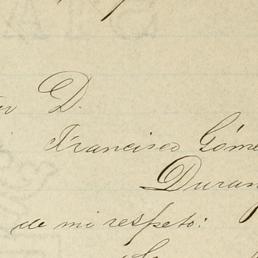 D.
Francisco Góme
Duran
de mi respeto: